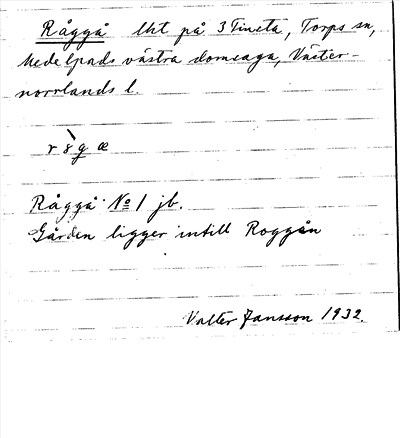 Råggå lht på 3 Tineta, Torps sn,
Medelpads västra domsaga, Väster-
norrlands l.
Råggå No 1 jb.
Gården ligger intill Roggån
Valter Jansson 1932.